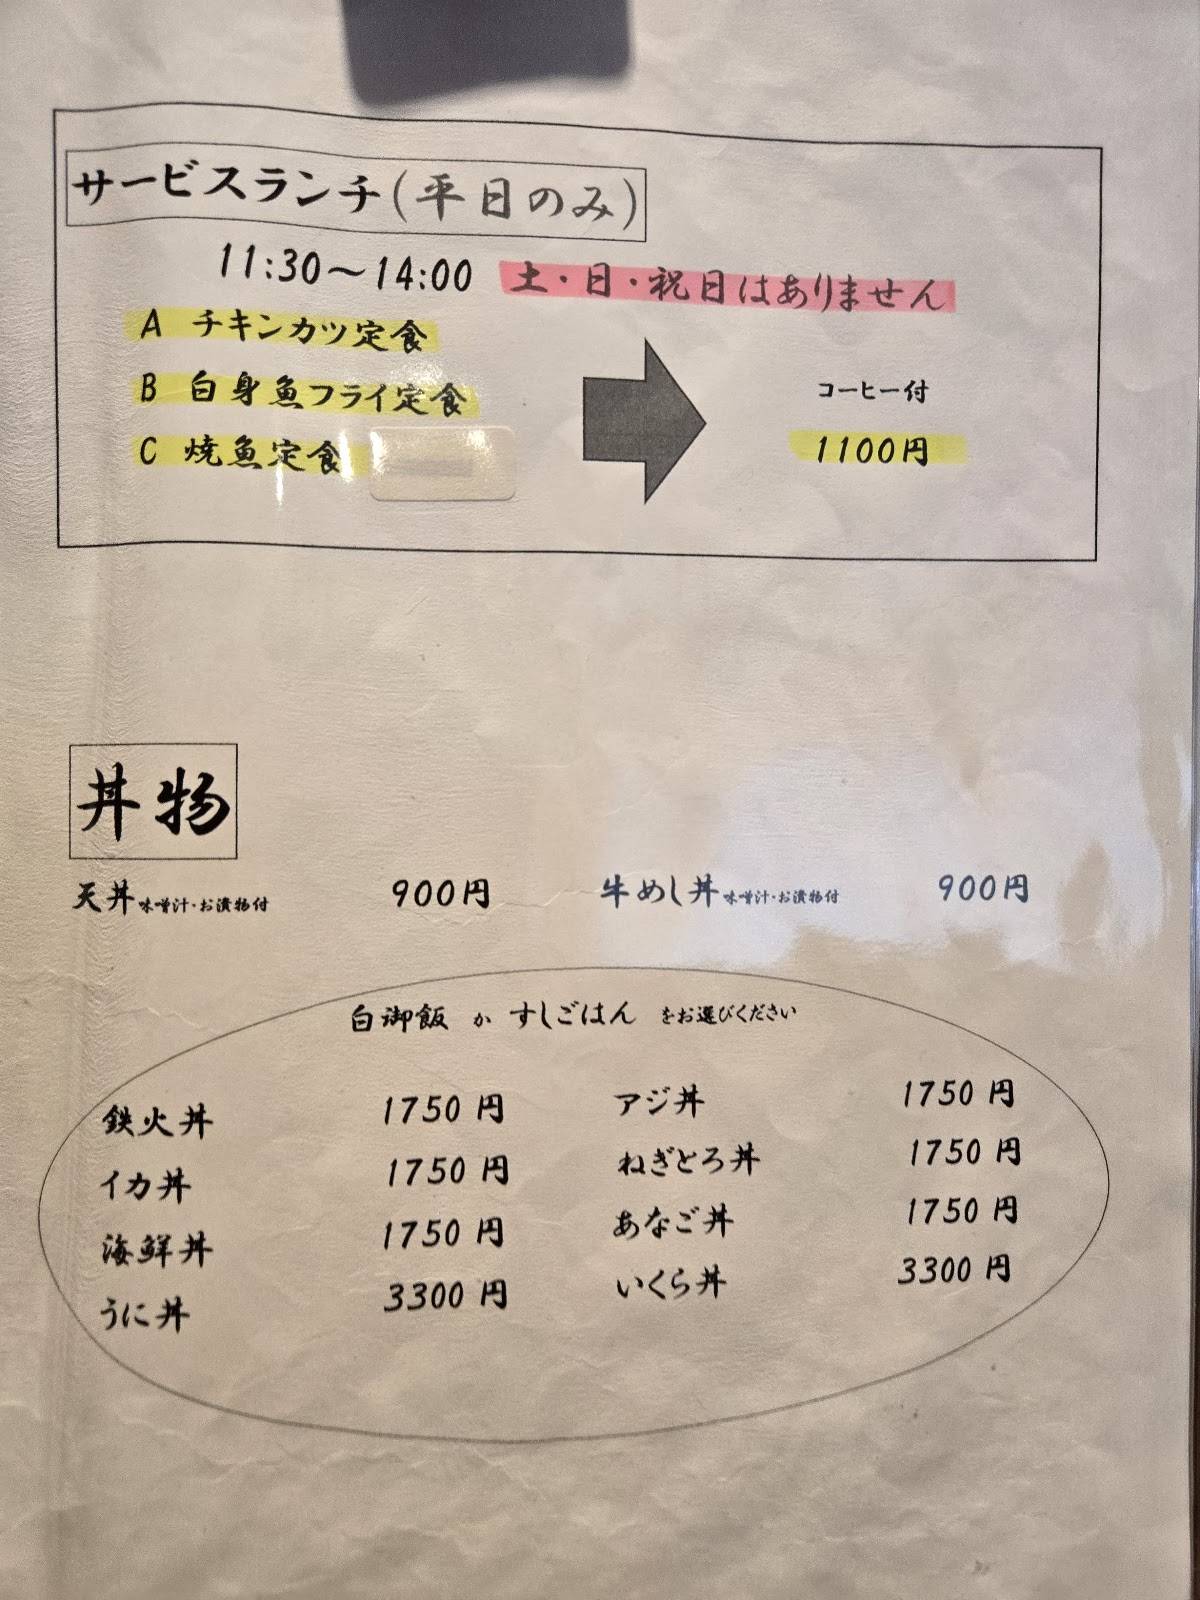 サービスランチ(平日のみ)
11:30〜14:00 土・日・祝日はありません
A チキンカツ定食
B 白身魚フライ定食
C 焼魚定食
コーヒー付
1100円
丼物
天丼 味噌汁・お漬物付 900円 牛めし丼 味噌汁・お漬物付 900円
白御飯 か すしごはん をお選びください
鉄火丼 1750円 アジ丼 1750円
イカ丼 1750円 ねぎとろ丼 1750円
海鮮丼 1750円 あなご丼 1750円
うに丼 3300円 いくら丼 3300円